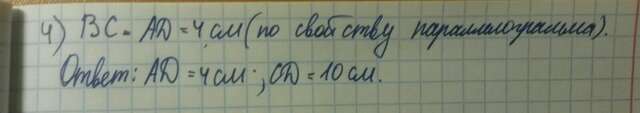 4) BC = AD = 4 см (по свойству параллелограмма).
Ответ: AD = 4 см ; CD = 10 см.